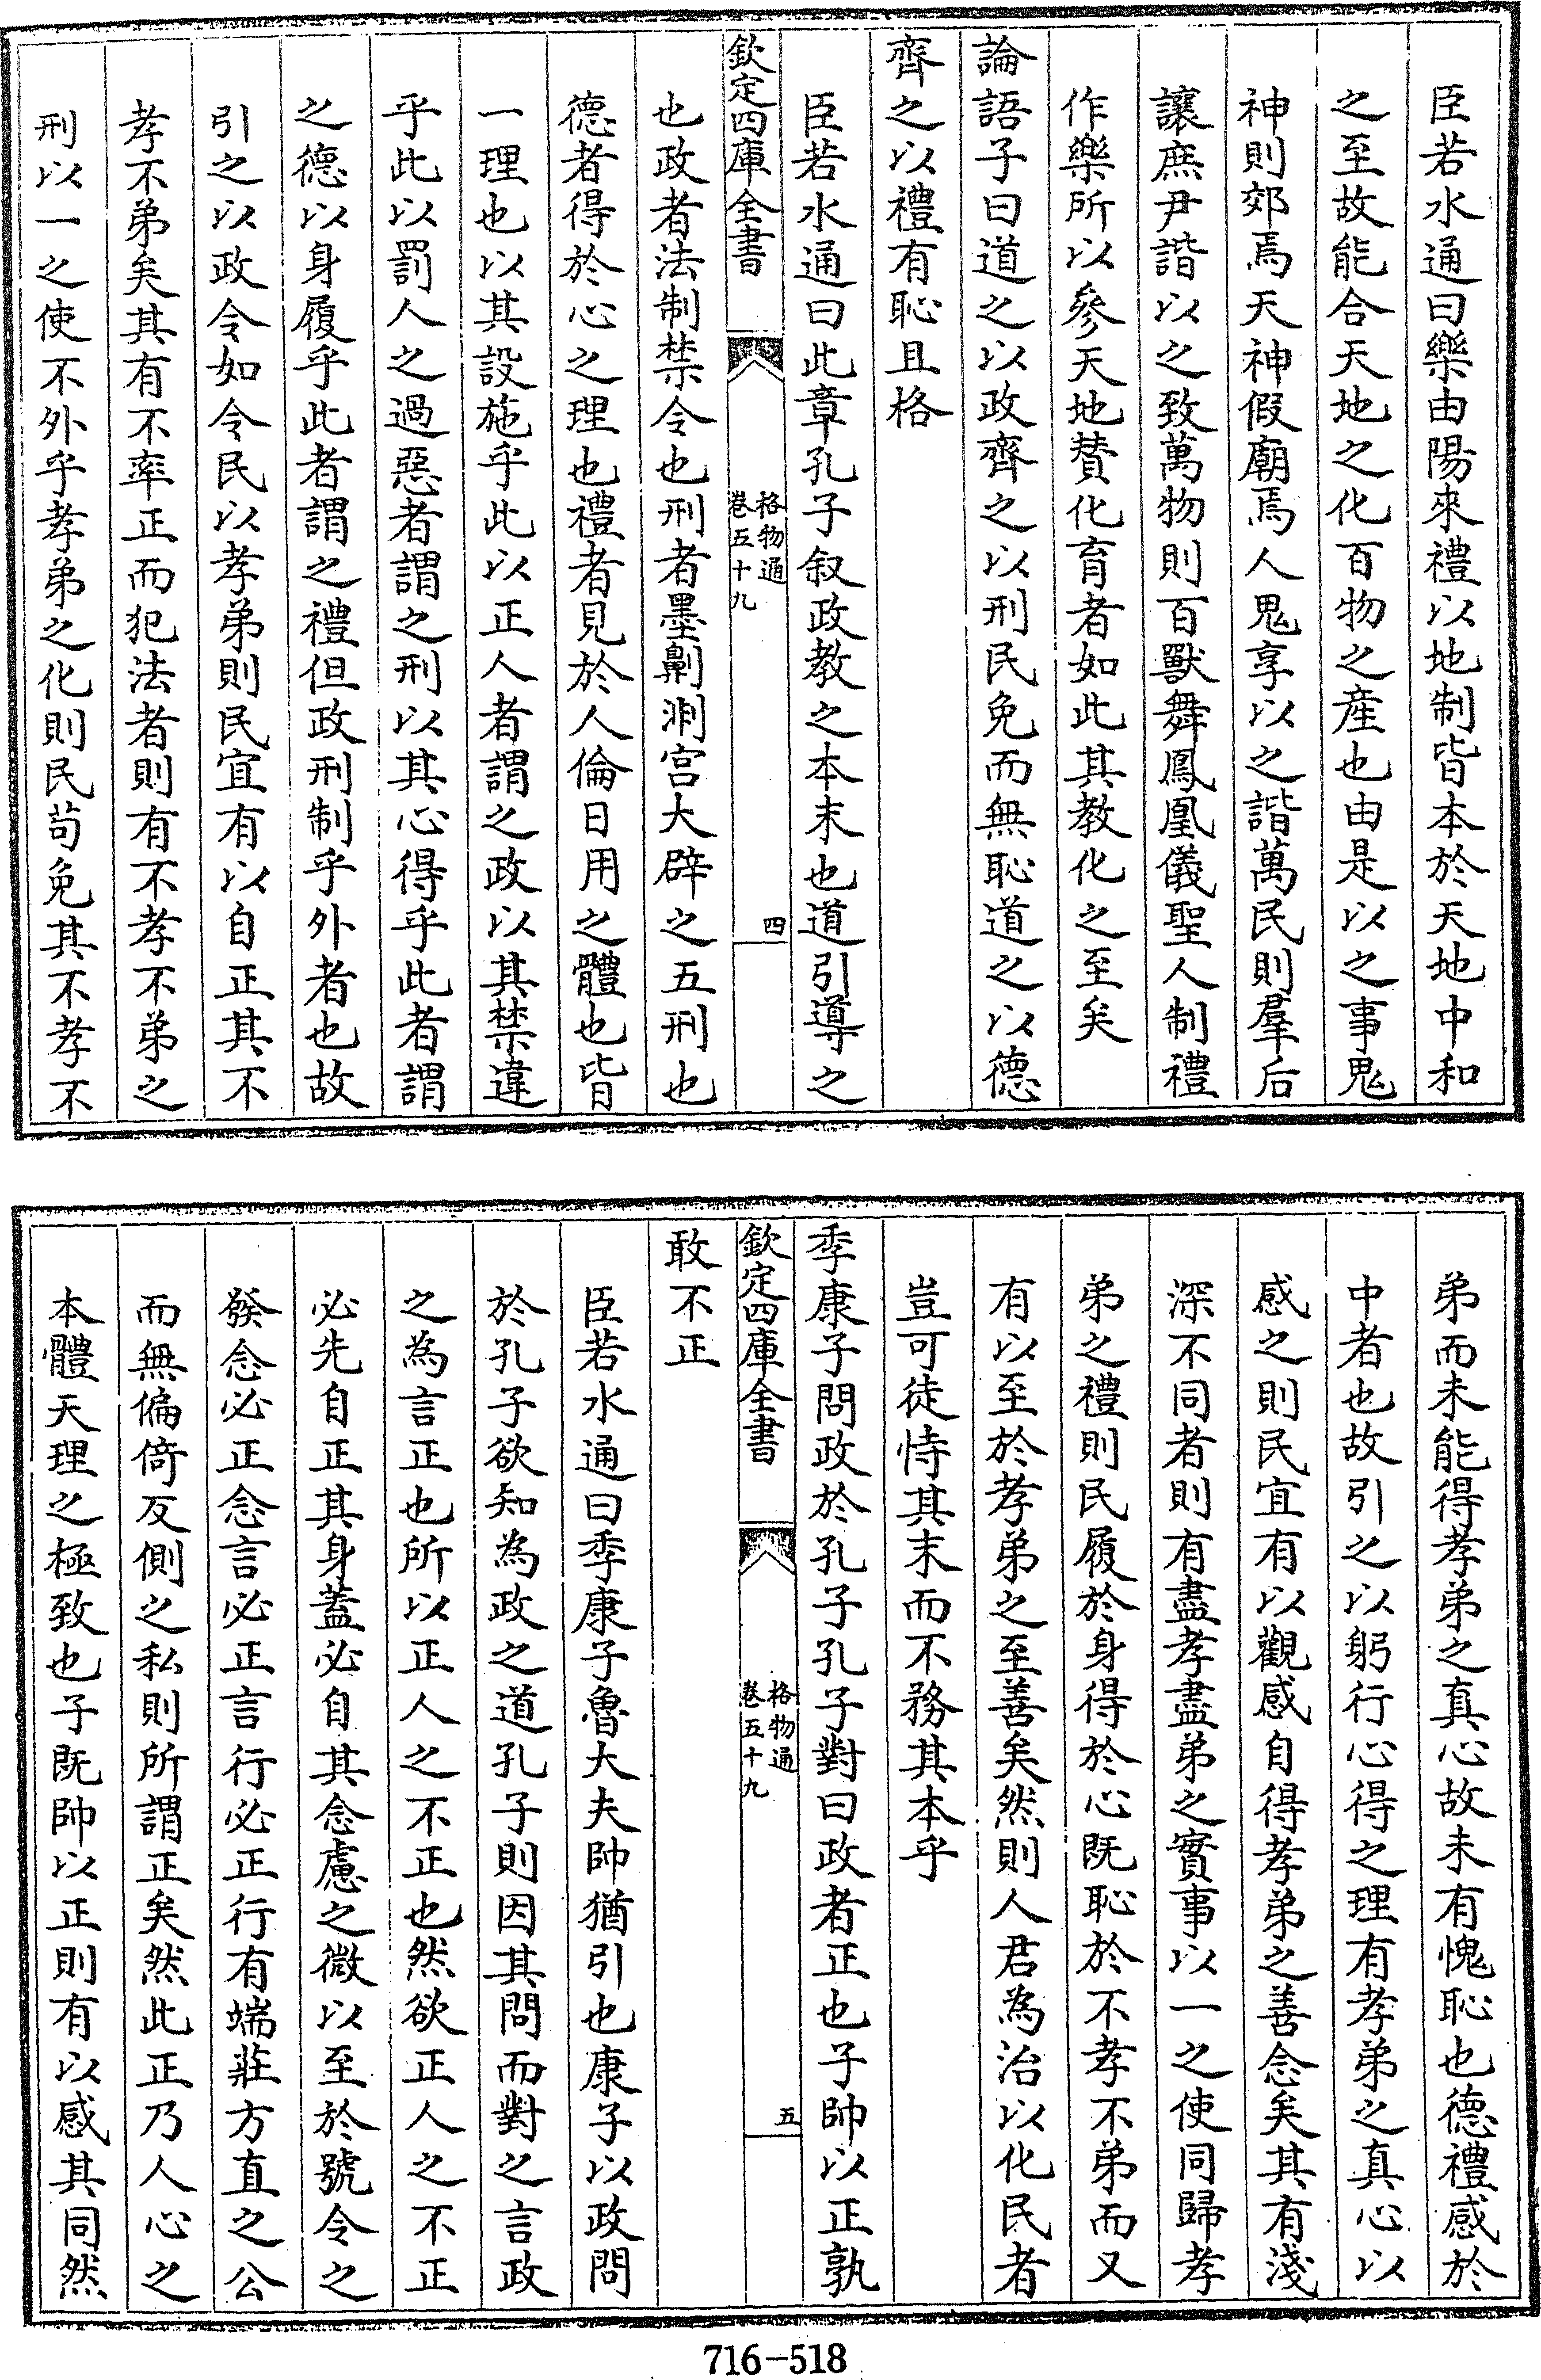 臣若水通曰樂由陽來禮以地制皆本於天地中和
之至故能合天地之化百物之産也由是以之事鬼
神則郊焉天神假廟焉人鬼享以之諧萬民則羣后
讓庶尹諧以之致萬物則百獸舞鳳凰儀聖人制禮
作樂所以參天地賛化育者如此其教化之至矣
論語子曰道之以政齊之以刑民免而無恥道之以德
齊之以禮有恥且格
臣若水通曰此章孔子叙政教之本末也道引導之
欽定四庫全書
格物通
卷五十九
四
也政者法制禁令也刑者墨劓剕宫大辟之五刑也
德者得於心之理也禮者見於人倫日用之體也皆
一理也以其設施乎此以正人者謂之政以其禁違
乎此以罰人之過惡者謂之刑以其心得乎此者謂
之德以身履乎此者謂之禮但政刑制乎外者也故
引之以政令如令民以孝弟則民宜有以自正其不
孝不弟矣其有不率正而犯法者則有不孝不弟之
刑以一之使不外乎孝弟之化則民苟免其不孝不
弟而未能得孝弟之真心故未有愧恥也德禮感於
中者也故引之以躬行心得之理有孝弟之真心以
感之則民宜有以觀感自得孝弟之善念矣其有淺
深不同者則有盡孝盡弟之實事以一之使同歸孝
弟之禮則民履於身得於心既恥於不孝不弟而又
有以至於孝弟之至善矣然則人君為治以化民者
豈可徒恃其末而不務其本乎
季康子問政於孔子孔子對曰政者正也子帥以正孰
欽定四庫全書
格物通
卷五十九
五
敢不正
臣若水通曰季康子魯大夫帥猶引也康子以政問
於孔子欲知為政之道孔子則因其問而對之言政
之為言正也所以正人之不正也然欲正人之不正
必先自正其身蓋必自其念慮之微以至於號令之
發念必正念言必正言行必正行有端莊方直之公
而無偏倚反側之私則所謂正矣然此正乃人心之
本體天理之極致也子既帥以正則有以感其同然
716-518